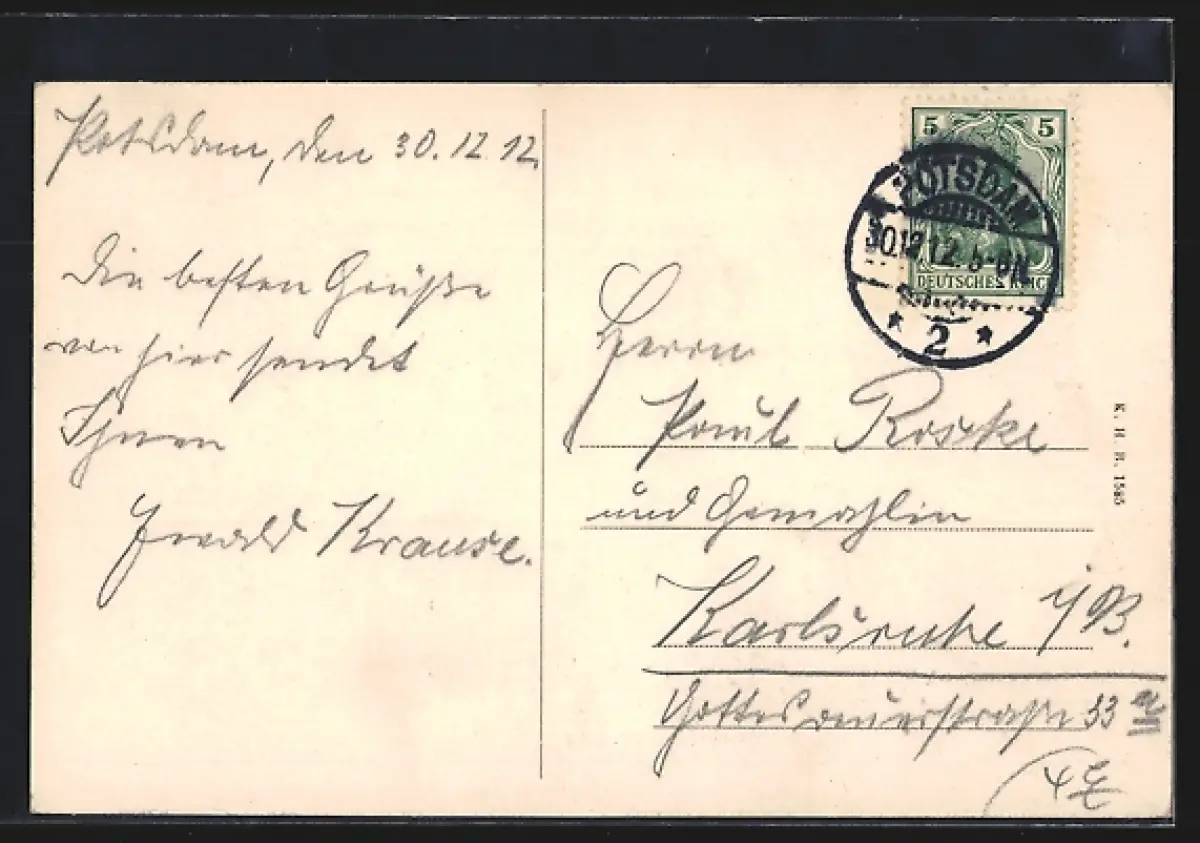 Potsdam, den 30.12.12.
Die besten Grüße
von hier sendet
Ihnen
Ewald Krause.
5 5
POTSDAM
30.12.12. 5-6N.
DEUTSCHES REICH
* 2 *
Herrn
Paul Roske
und Gemahlin
Karlsruhe i/B.
Gottesauerstraße 33 a
K. H. B. 1585